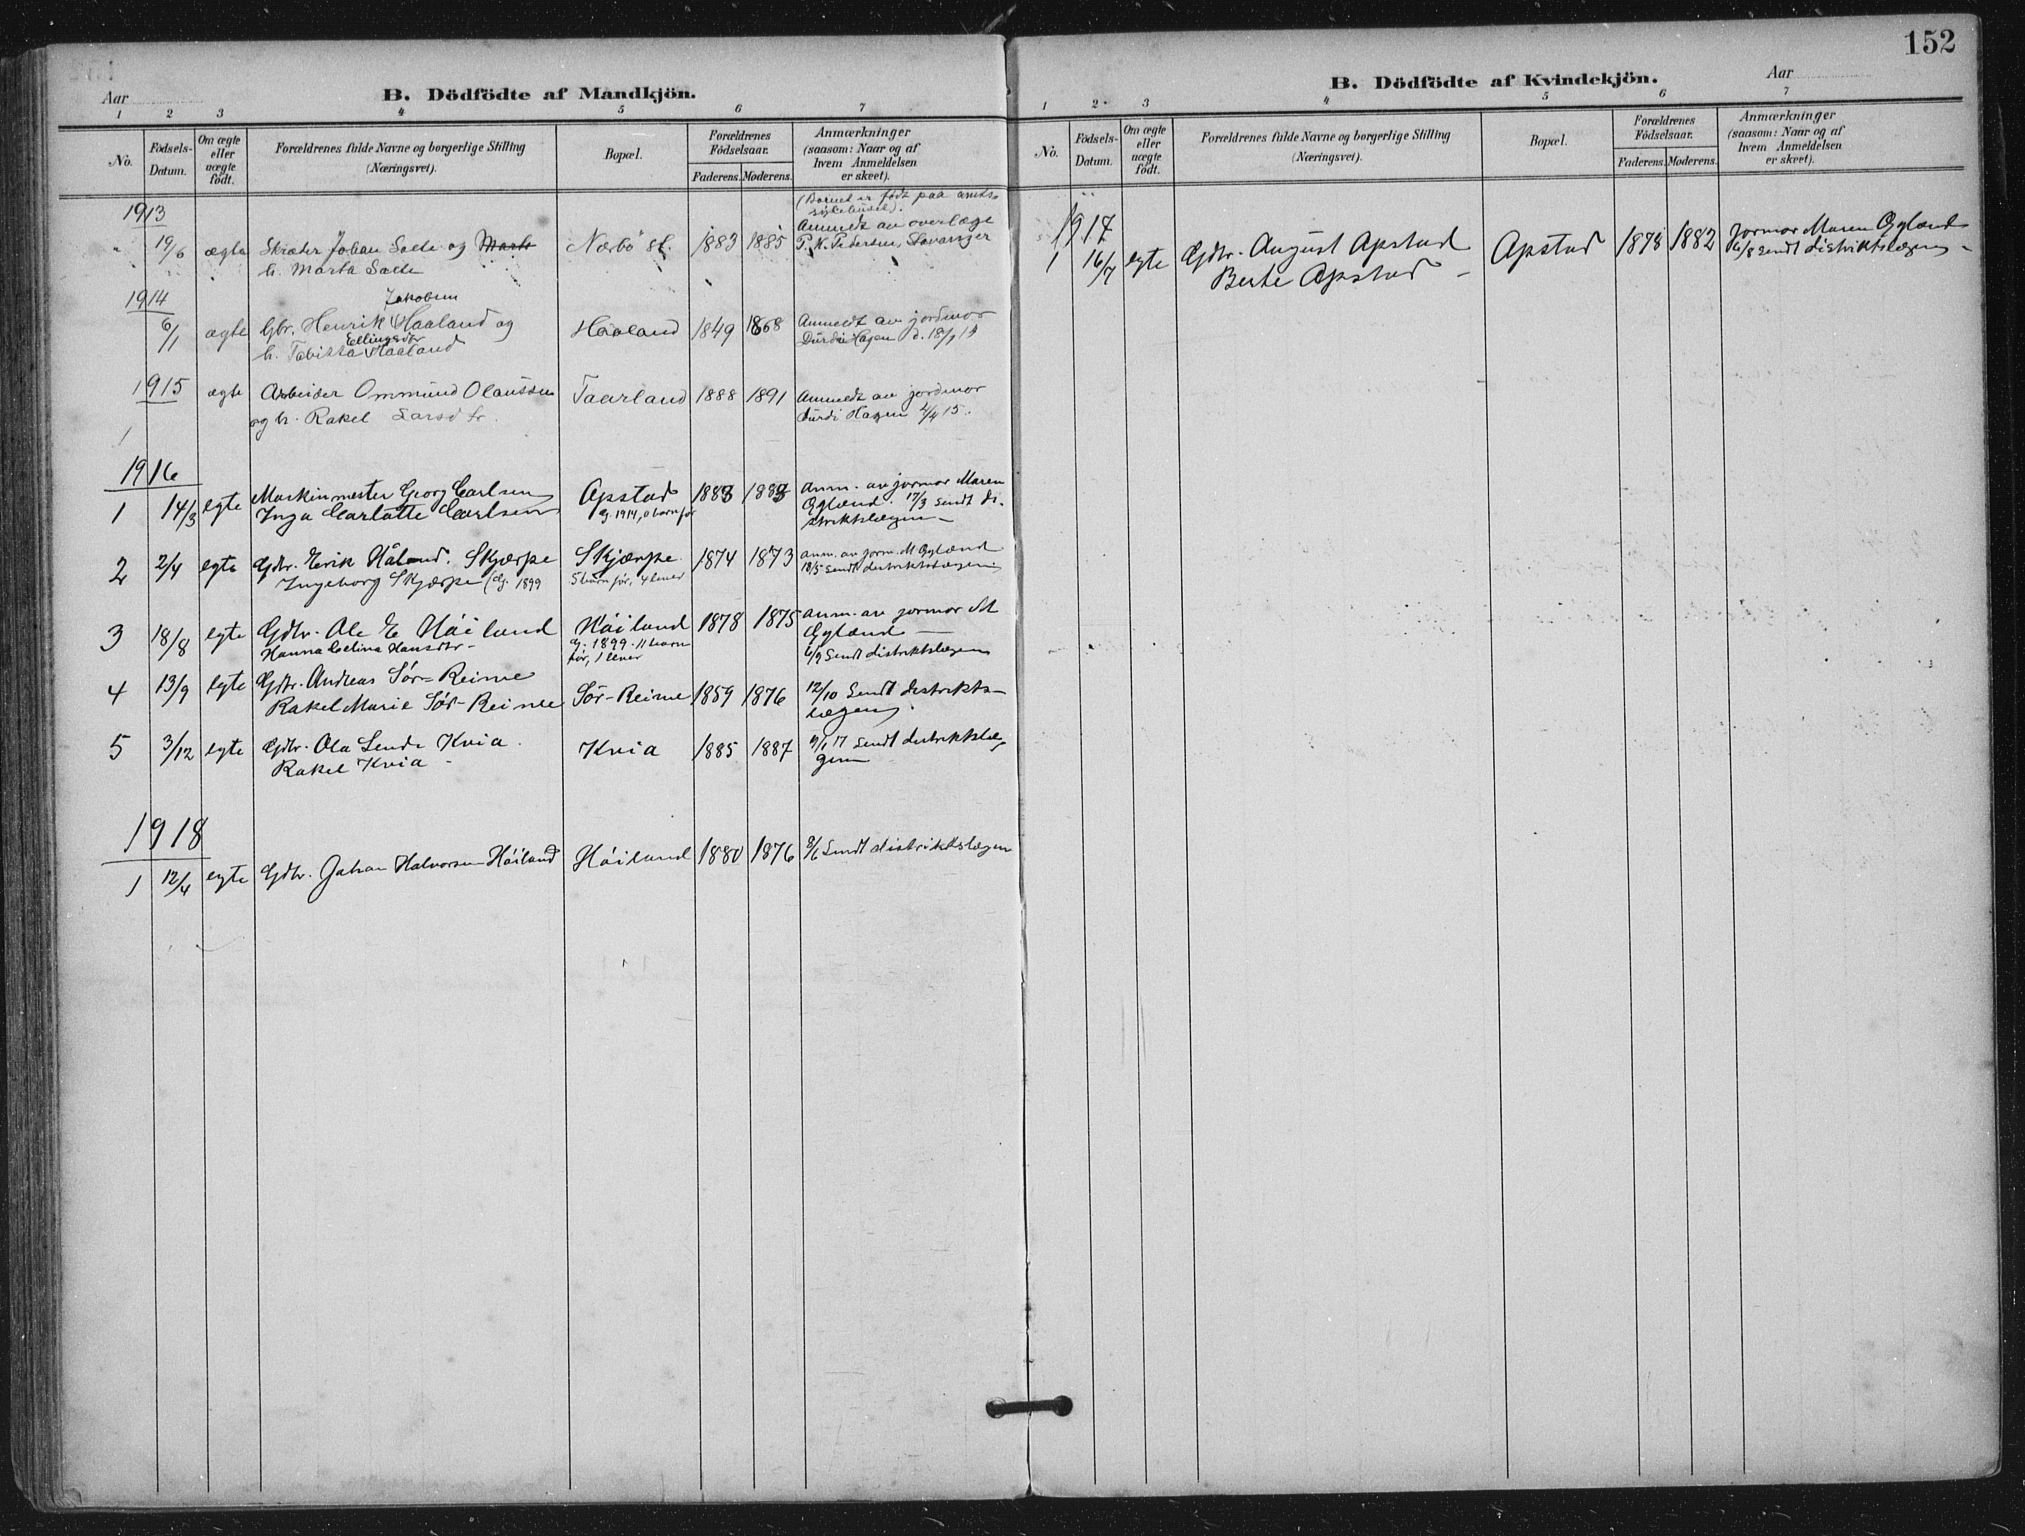 152
Aar
B. Dödfödte af Mandkjön.
1 2 3 4 5 6 7
No.
Födsels-
Datum.
Om ægte
eller
uægte
födt.
Forældrenes fulde Navne og borgerlige Stilling
(Næringsvei).
Bopæl.
Forældrenes
Födselsaar.
Faderens. Moderens.
Anmærkninger
(saasom: Naar og af
hvem Anmeldelsen
er skeet).
1913
(Barnet er født paa amts-
sykehuset).
" 19/6 ægte Skræder Johan Salte og Marta Nærbö st. 1883 1885 Anmeldt av overlæge
h. Marta Salte P. K. Pedersen, Stavanger
1914
Jakobsen
6/1 ægte Gbr. Henrik Haaland og Haaland 1849 1868 Anmeldt av jordmor
Ellingsdtr
h. Tabitta Haaland Durdi Hagen d. 18/1 14
1915 ægte Arbeider Ommund Olaussen Taarland 1888 1891 Anmeldt av jordmor
1 og h. Rakel Larsdtr. Durdi Hagen 2/4 15.
1916
1 14/3 egte Maskinmester Georg Carlsen Opstad 1883 1889 anm. av jormor Maren
Inga Carlotte Carlsen g. 1914, 0 barn før Ogland. 17/3 sendt di-
striktslægen
2 2/4 egte Gdbr. Eirik Håland, Skjærpe Skjærpe 1874 1873 anm. av jorm. M Ogland
Ingeborg Skjærpe (g. 1899 5 barn før, 4 lever 18/5 sendt distriktslægen
3 18/8 egte Gdbr. Ole E Høiland Høiland 1878 1875 anm. av jormor M
Hanna Celina Hansdtr g. 1899. 11 barn Ogland
før, 1 lever 6/9 sendt distriktslægen
4 13/9 egte Gdbr. Andreas Sør-Reime
Rakel Marie Sør-Reime Sør-Reime 1859 1876 12/10 Sendt distrikts-
lægen
5 3/12 egte Gdbr. Ola Lende Kvia Kvia 1885 1887 9/1 17 sendt distriktslæ-
Rakel Kvia gen
1918
1 12/4 egte Gdbr. Johan Halvorsen Høiland Høiland 1880 1876 8/6 Sendt distriktslægen
B. Dödfödte af Kvindekjön.
Aar
1 2 3 4 5 6 7
No.
Födsels-
Datum.
Om ægte
eller
uægte
födt.
Forældrenes fulde Navne og borgerlige Stilling
(Næringsvei).
Bopæl.
Forældrenes
Födselsaar.
Faderens. Moderens.
Anmærkninger
(saasom: Naar og af
hvem Anmeldelsen
er skeet).
1917
1 16/7 egte Gdbr. August Opstad Opstad 1878 1882 Jormor Maren Ogland
Berte Opstad 16/8 sendt distriktslægen